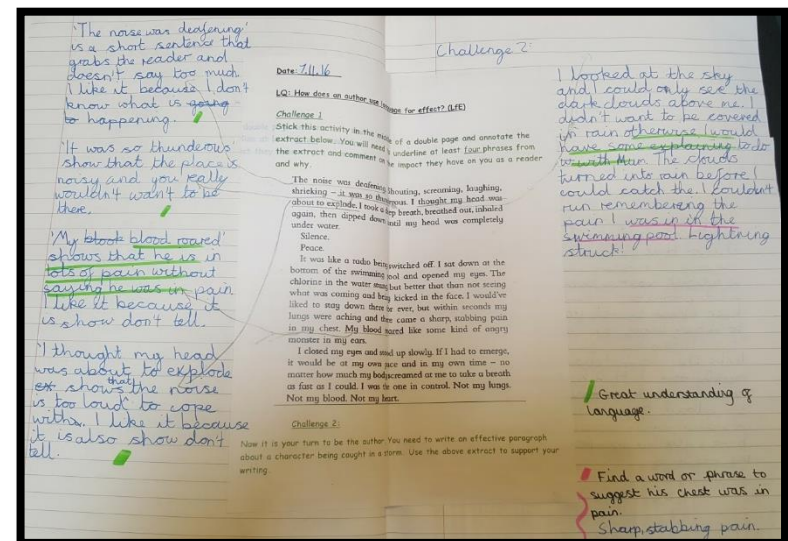 'The noise was deafening'
is a short sentence that
grabs the reader and
doesn't say too much.
I like it because I don't
know what is going
to happening.
'It was so thunderous'
show that the place is
noisy and you really
wouldn't want to be
there.
'My blook blood roared'
shows that he is in
lots of pain without
saying he was in pain
I like it because it
is show don't tell.
'I thought my head
was about to explode
ex shows that the noise
is too loud to cope
with. I like it because
it is also show don't
tell.
Date: 7.11.16
LQ: How does an author use language for effect? (LfE)
Challenge 1
Stick this activity in the middle of a double page and annotate the
extract below. You will need to underline at least four phrases from
the extract and comment on the impact they have on you as a reader
and why.
The noise was deafening. Shouting, screaming, laughing,
shrieking – it was so thunderous. I thought my head was
about to explode. I took a deep breath, breathed out, inhaled
again, then dipped down until my head was completely
under water.
Silence.
Peace.
It was like a radio being switched off. I sat down at the
bottom of the swimming pool and opened my eyes. The
chlorine in the water stung but better that than not seeing
what was coming and being kicked in the face. I would've
liked to stay down there for ever, but within seconds my
lungs were aching and there came a sharp, stabbing pain
in my chest. My blood roared like some kind of angry
monster in my ears.
I closed my eyes and stood up slowly. If I had to emerge,
it would be at my own pace and in my own time – no
matter how much my body screamed at me to take a breath
as fast as I could. I was the one in control. Not my lungs.
Not my blood. Not my heart.
Challenge 2:
Now it is your turn to be the author. You need to write an effective paragraph
about a character being caught in a storm. Use the above extract to support your
writing.
Challenge 2:
I looked at the sky
and I could only see the
dark clouds above me. I
didn't want to be covered
in rain otherwise I would
have some explaining to do
with Mum. The clouds
turned into rain before I
could catch the. I couldn't
run remembering the
pain I was in in the
swimming pool. Lightning
struck!
Great understanding of
language.
Find a word or phrase to
suggest his chest was in
pain.
Sharp, stabbing pain.